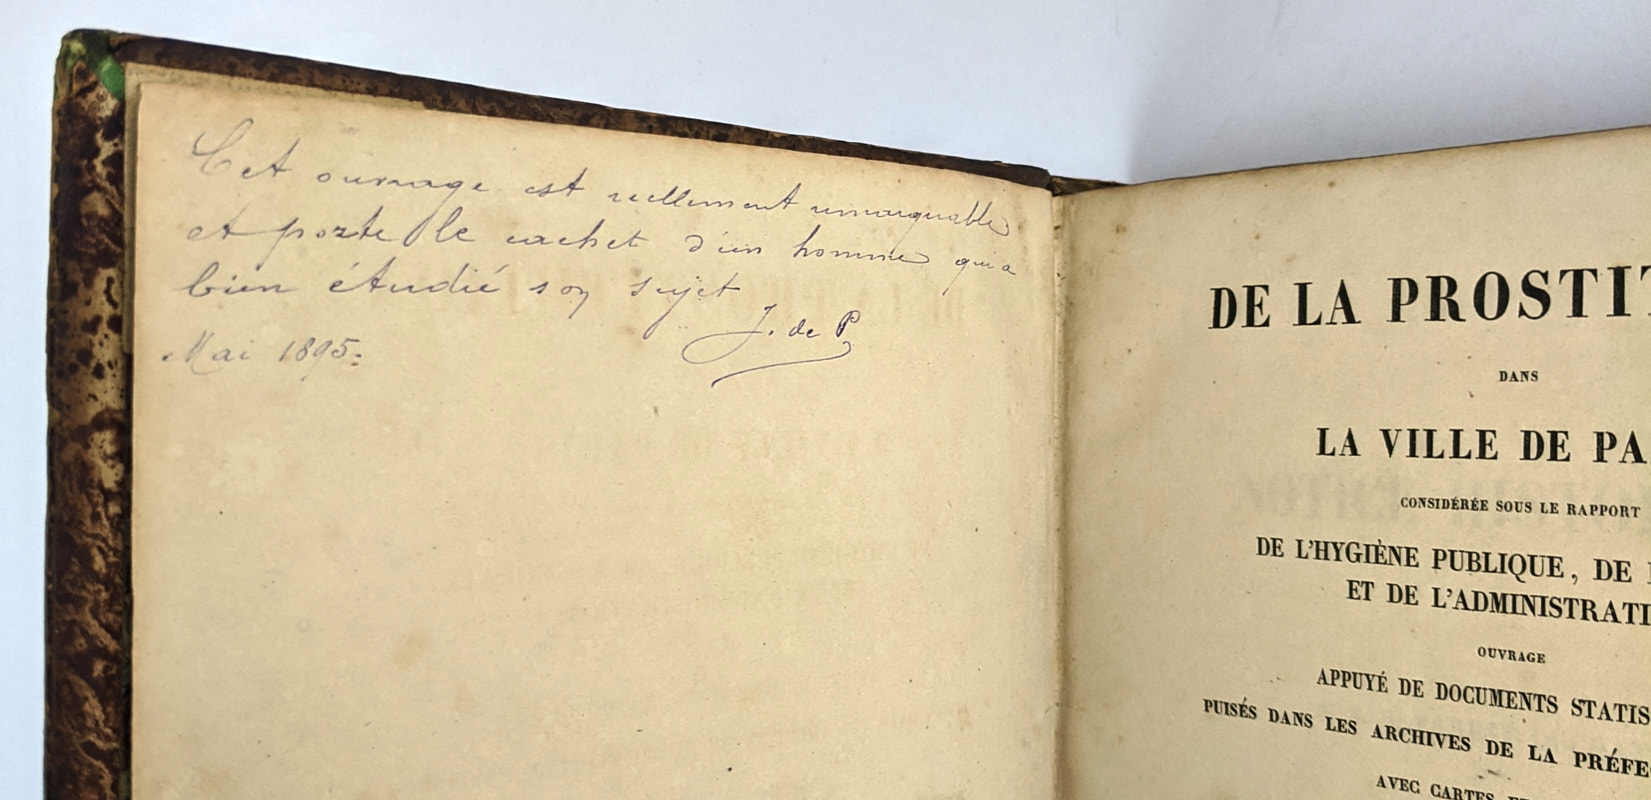 Cet ouvrage est réellement remarquable
et porte le cachet d'un homme qui a
bien étudié son sujet
J. de P
Mai 1895.
DE LA PROSTIT
DANS
LA VILLE DE PA
CONSIDÉRÉE SOUS LE RAPPORT
DE L'HYGIÈNE PUBLIQUE, DE
ET DE L'ADMINISTRATI
OUVRAGE
APPUYÉ DE DOCUMENTS STATIS
PUISÉS DANS LES ARCHIVES DE LA PRÉFE
AVEC CARTES